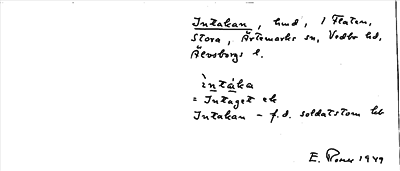 Intakan, hmd, i Flaten,
Stora, Ärtemarks sn, Vedbo hd,
Älvsborgs l.
ìntáka
= Intaget ek
Intakan - f.d. soldatstom
E. 1949